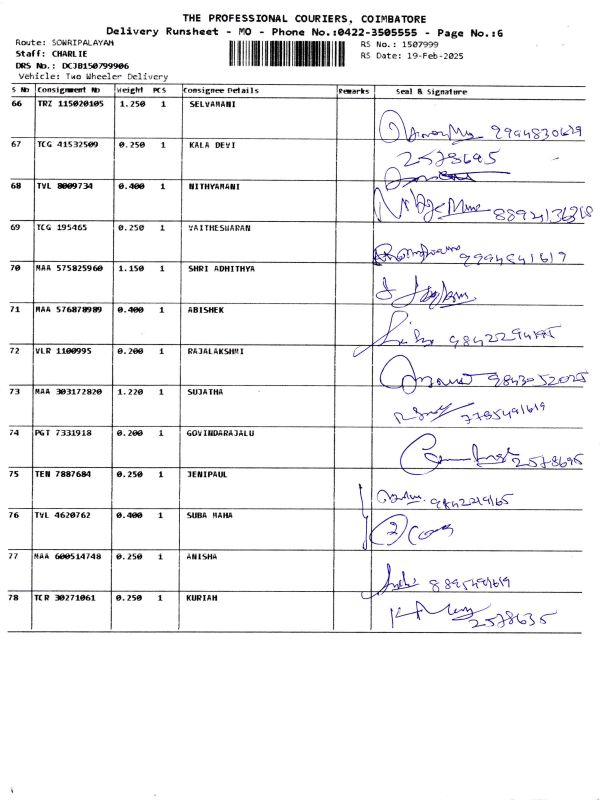 THE PROFESSIONAL COURIERS, COIMBATORE
Delivery Runsheet - MO - Phone No.:0422-3505555 - Page No.:6
Route: SOWRIPALAYAM RS No.: 1507999
Staff: CHARLIE RS Date: 19-Feb-2025
DRS No.: DCJB150799906
Vehicle: Two Wheeler Delivery
S No Consignment No Weight PCS Consignee Details Remarks Seal & Signature
66 TRZ 115020105 1.250 1 SELVAMANI
9994830629
67 TCG 41532509 0.250 1 KALA DEVI
2578695
68 TVL 8009734 0.400 1 NITHYAMANI
69 TCG 195465 0.250 1 VAITHESWARAN
9994541619
70 MAA 575825960 1.150 1 SHRI ADHITHYA
71 MAA 576878989 0.400 1 ABISHEK
72 VLR 1100995 0.200 1 RAJALAKSHMI
9843052025
73 MAA 303172820 1.220 1 SUJATHA
7785491619
74 PGT 7331918 0.200 1 GOVINDARAJALU
2578695
75 TEN 7887684 0.250 1 JENIPAUL
76 TVL 4620762 0.400 1 SUBA MAHA
77 MAA 600514748 0.250 1 ANISHA
8895491619
78 TCR 30271061 0.250 1 KURIAH
2578635